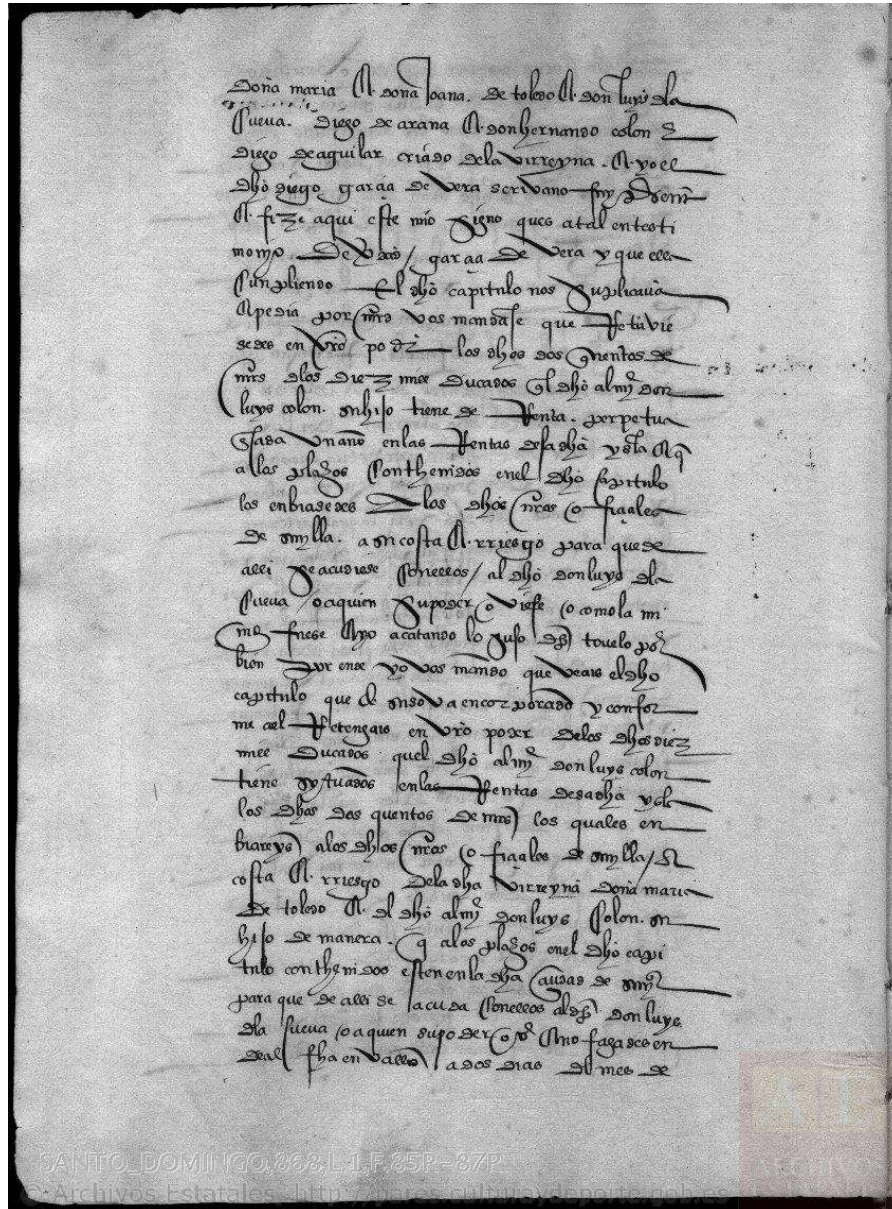 doña maria e doña Joana de toledo e don luys dla
cueva. diego de arana e don hernando colon e
diego de aguilar criado dela virreyna. e yo el
dho diego garcia de vera scrivano
e fize aqui este mio signo ques a tal en testi
monyo de vdad / garcia de vera y que
cunpliendo el dho capitulo nos suplicava
e pedia por mrd vos mandase que Retuvie
sedes en vro poder los dhos dos quentos de
mrs dlos diez mill ducados ql dho almy don
luys colon su hijo tiene de Renta perpetua
cada un año enlas Rentas desa dha ysla e q
a los plazos conthenidos enel dho capitulo
los enbiasedes a los dhos nros oficiales
de sevylla. a su costa e rriesgo para que de
alli se acudiese con ellos / al dho don luys dla
cueva / o a quien su poder oviese o como la mi
md fuese e yo acatando lo suso dho tovelo por
bien por ende yo vos mando que veais el dho
capitulo que de suso va encorporado y confor
me ael Retengais en vro poder delos dhos diez
mill ducados quel dho almy don luys colon
tiene sytuados enlas Rentas desa dha ysla
los dhos dos quentos de mrs los quales en
biareys a los dhos nros oficiales de sevylla / a
costa e rriesgo dela dha virreyna doña maria
de toledo e del dho almy don luys colon su
hijo de manera q a los plazos enel dho capi
tulo conthenidos esten en la dha cibdad de sevya
para que de alli se acuda con ellos al dho don luys
dla cueva / o a quien su poder oviere e no fagades en
deal fha en vallid a dos dias del mes de
SANTO_DOMINGO,868,L.1,F.85R-87R
© Archivos Estatales, http://pares.culturaydeporte.gob.es
ARCHIVOS